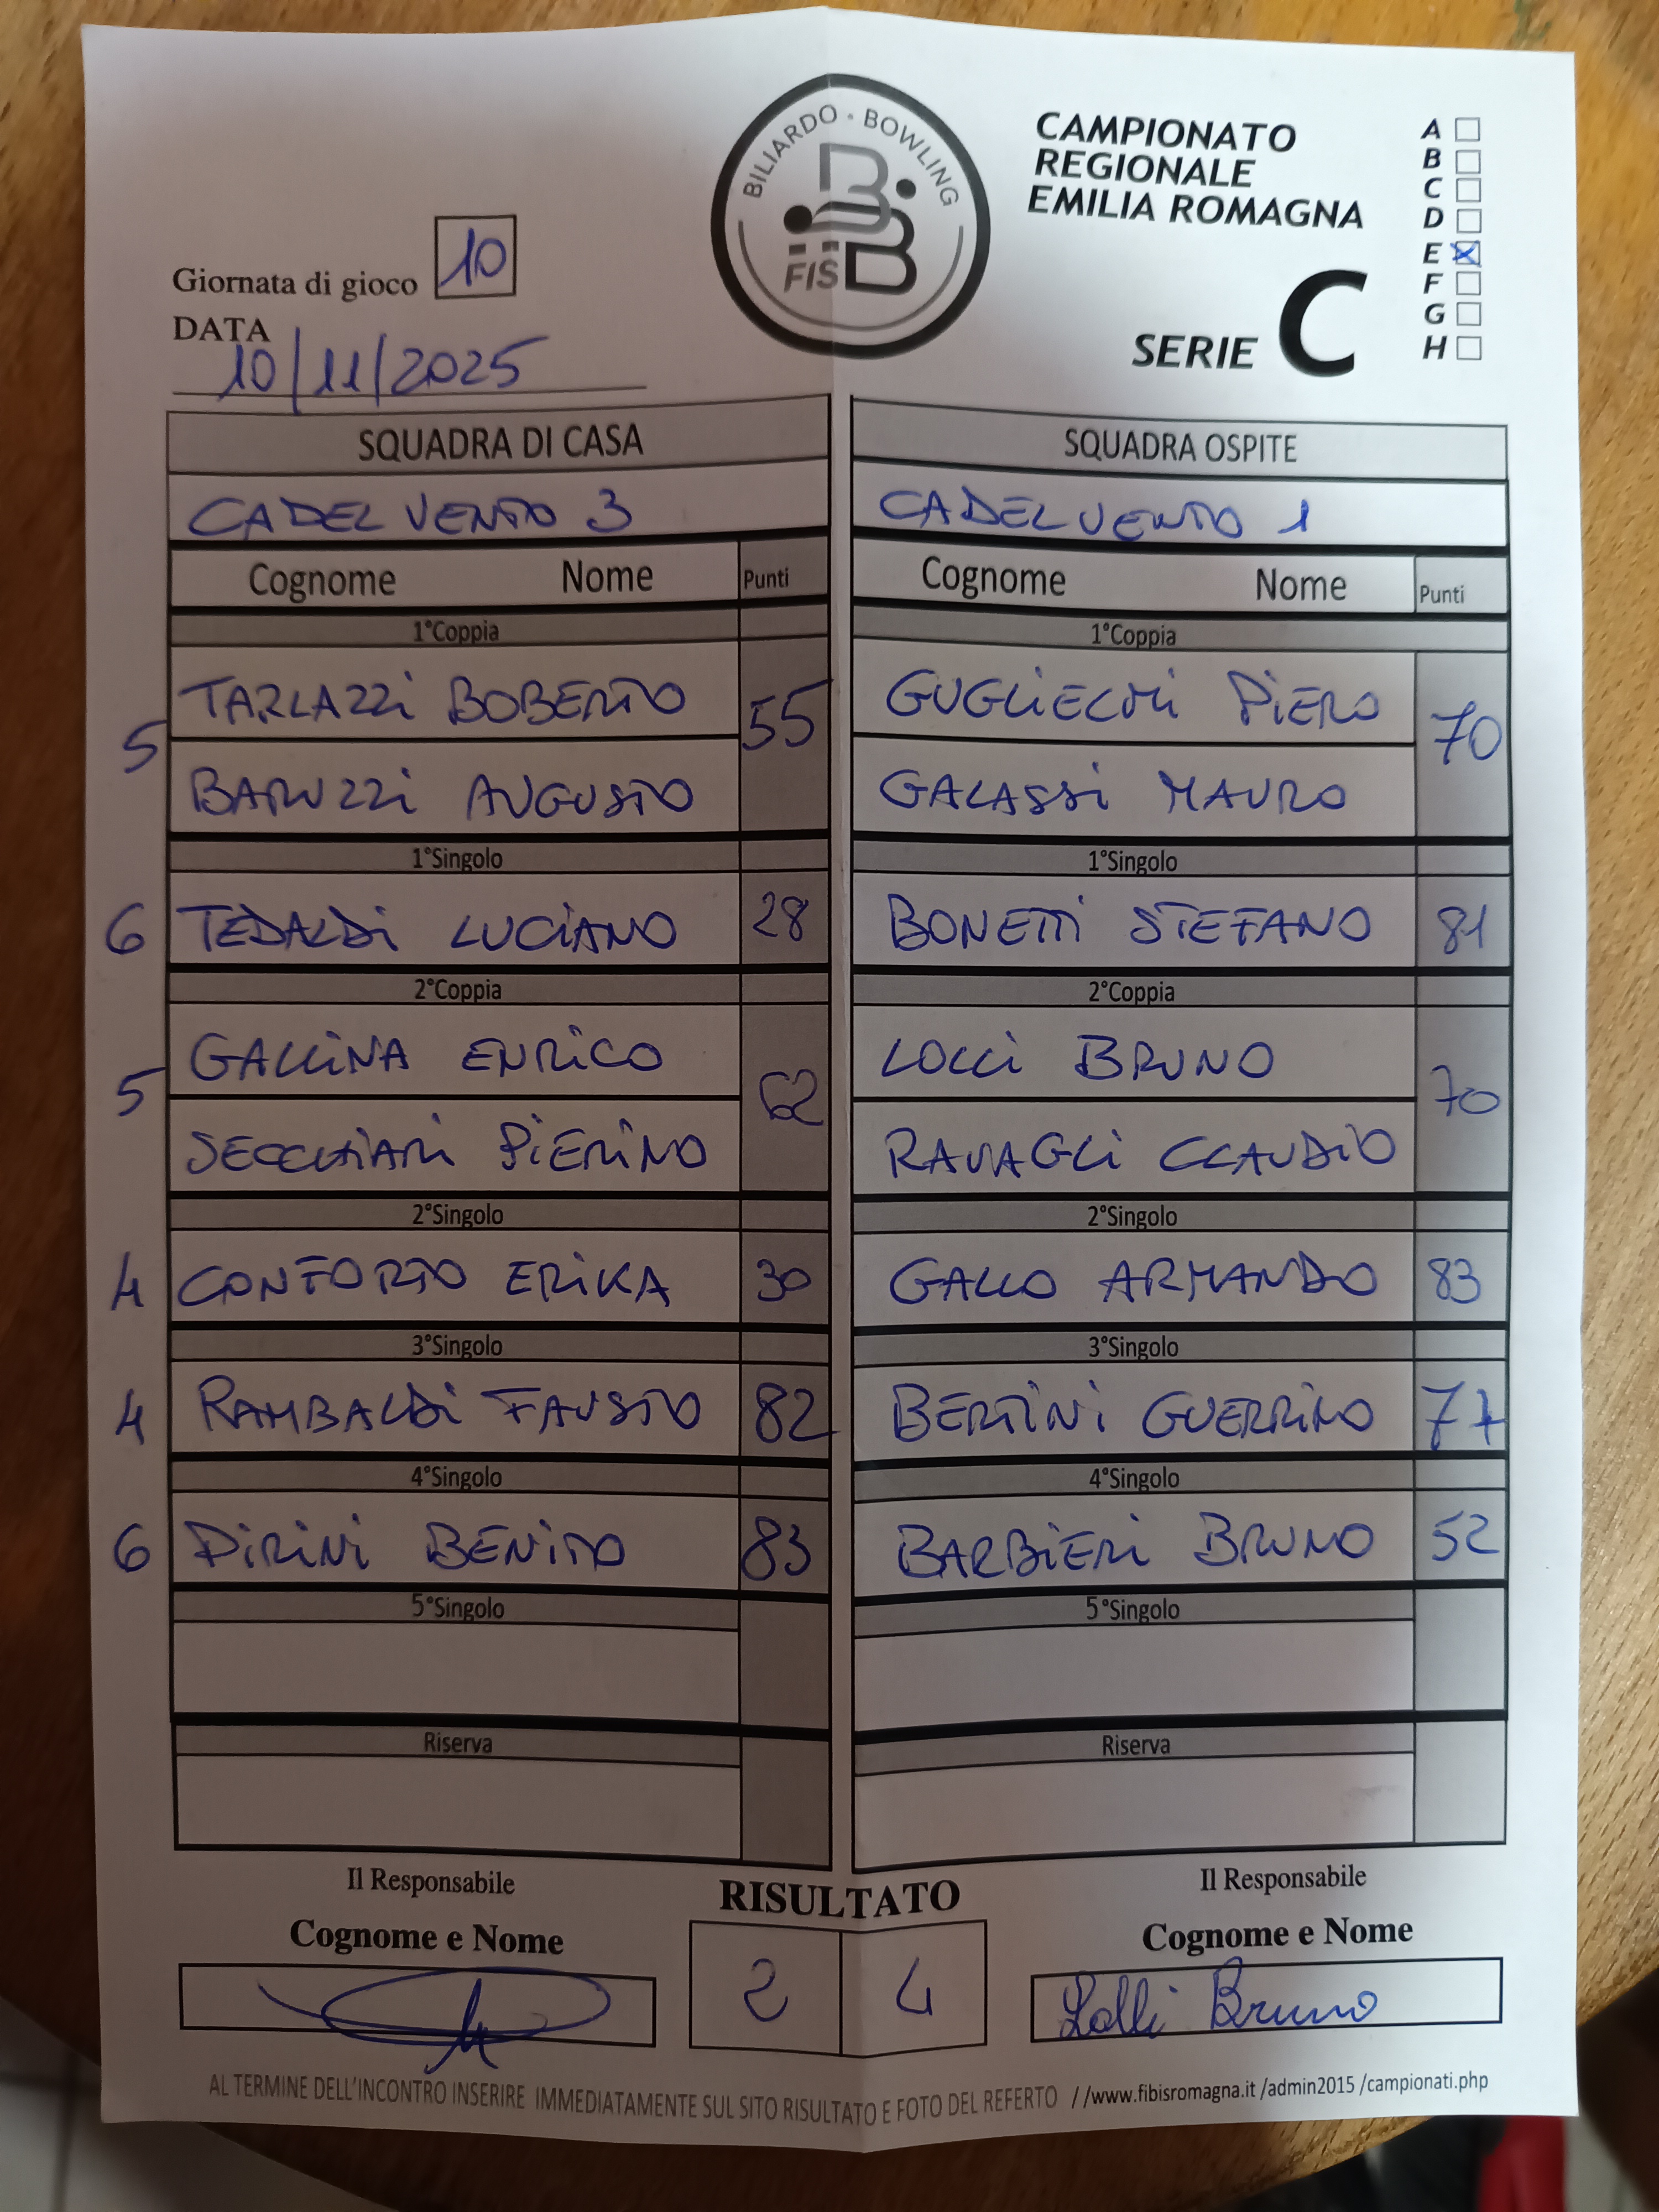 BILIARDO - BOWLING
FISBB
CAMPIONATO
REGIONALE
EMILIA ROMAGNA
SERIE C
A
B
C
D
E X
F
G
H
Giornata di gioco 10
DATA
10/11/2025
SQUADRA DI CASA
SQUADRA OSPITE
CADEL VENTO 3
CADEL VENTO 1
Cognome Nome Punti
Cognome Nome Punti
1°Coppia
1°Coppia
5 TARLAZZi BOBERTO 55
BARUZZi AUGUSTO
GUGLiELMi PiERO 70
GALASSi MAURO
1°Singolo
1°Singolo
6 TEDALDi LUCiANO 28
BONETTi STEFANO 81
2°Coppia
2°Coppia
5 GALLiNA ENRiCO 62
SECCHiARi PiERiNO
LOLLi BRUNO 70
RAVAGLi CLAUDiO
2°Singolo
2°Singolo
4 CONFORTO ERiKA 30
GALLO ARMANDO 83
3°Singolo
3°Singolo
4 RAMBALDi FAUSTO 82
BERTiNi GUERRiNO 77
4°Singolo
4°Singolo
6 PiRiNi BENiTO 83
BARBiERi BRUNO 52
5°Singolo
5°Singolo
Riserva
Riserva
Il Responsabile
Cognome e Nome
RISULTATO
2 4
Il Responsabile
Cognome e Nome
Lolli Bruno
AL TERMINE DELL'INCONTRO INSERIRE IMMEDIATAMENTE SUL SITO RISULTATO E FOTO DEL REFERTO //www.fibisromagna.it /admin2015 /campionati.php